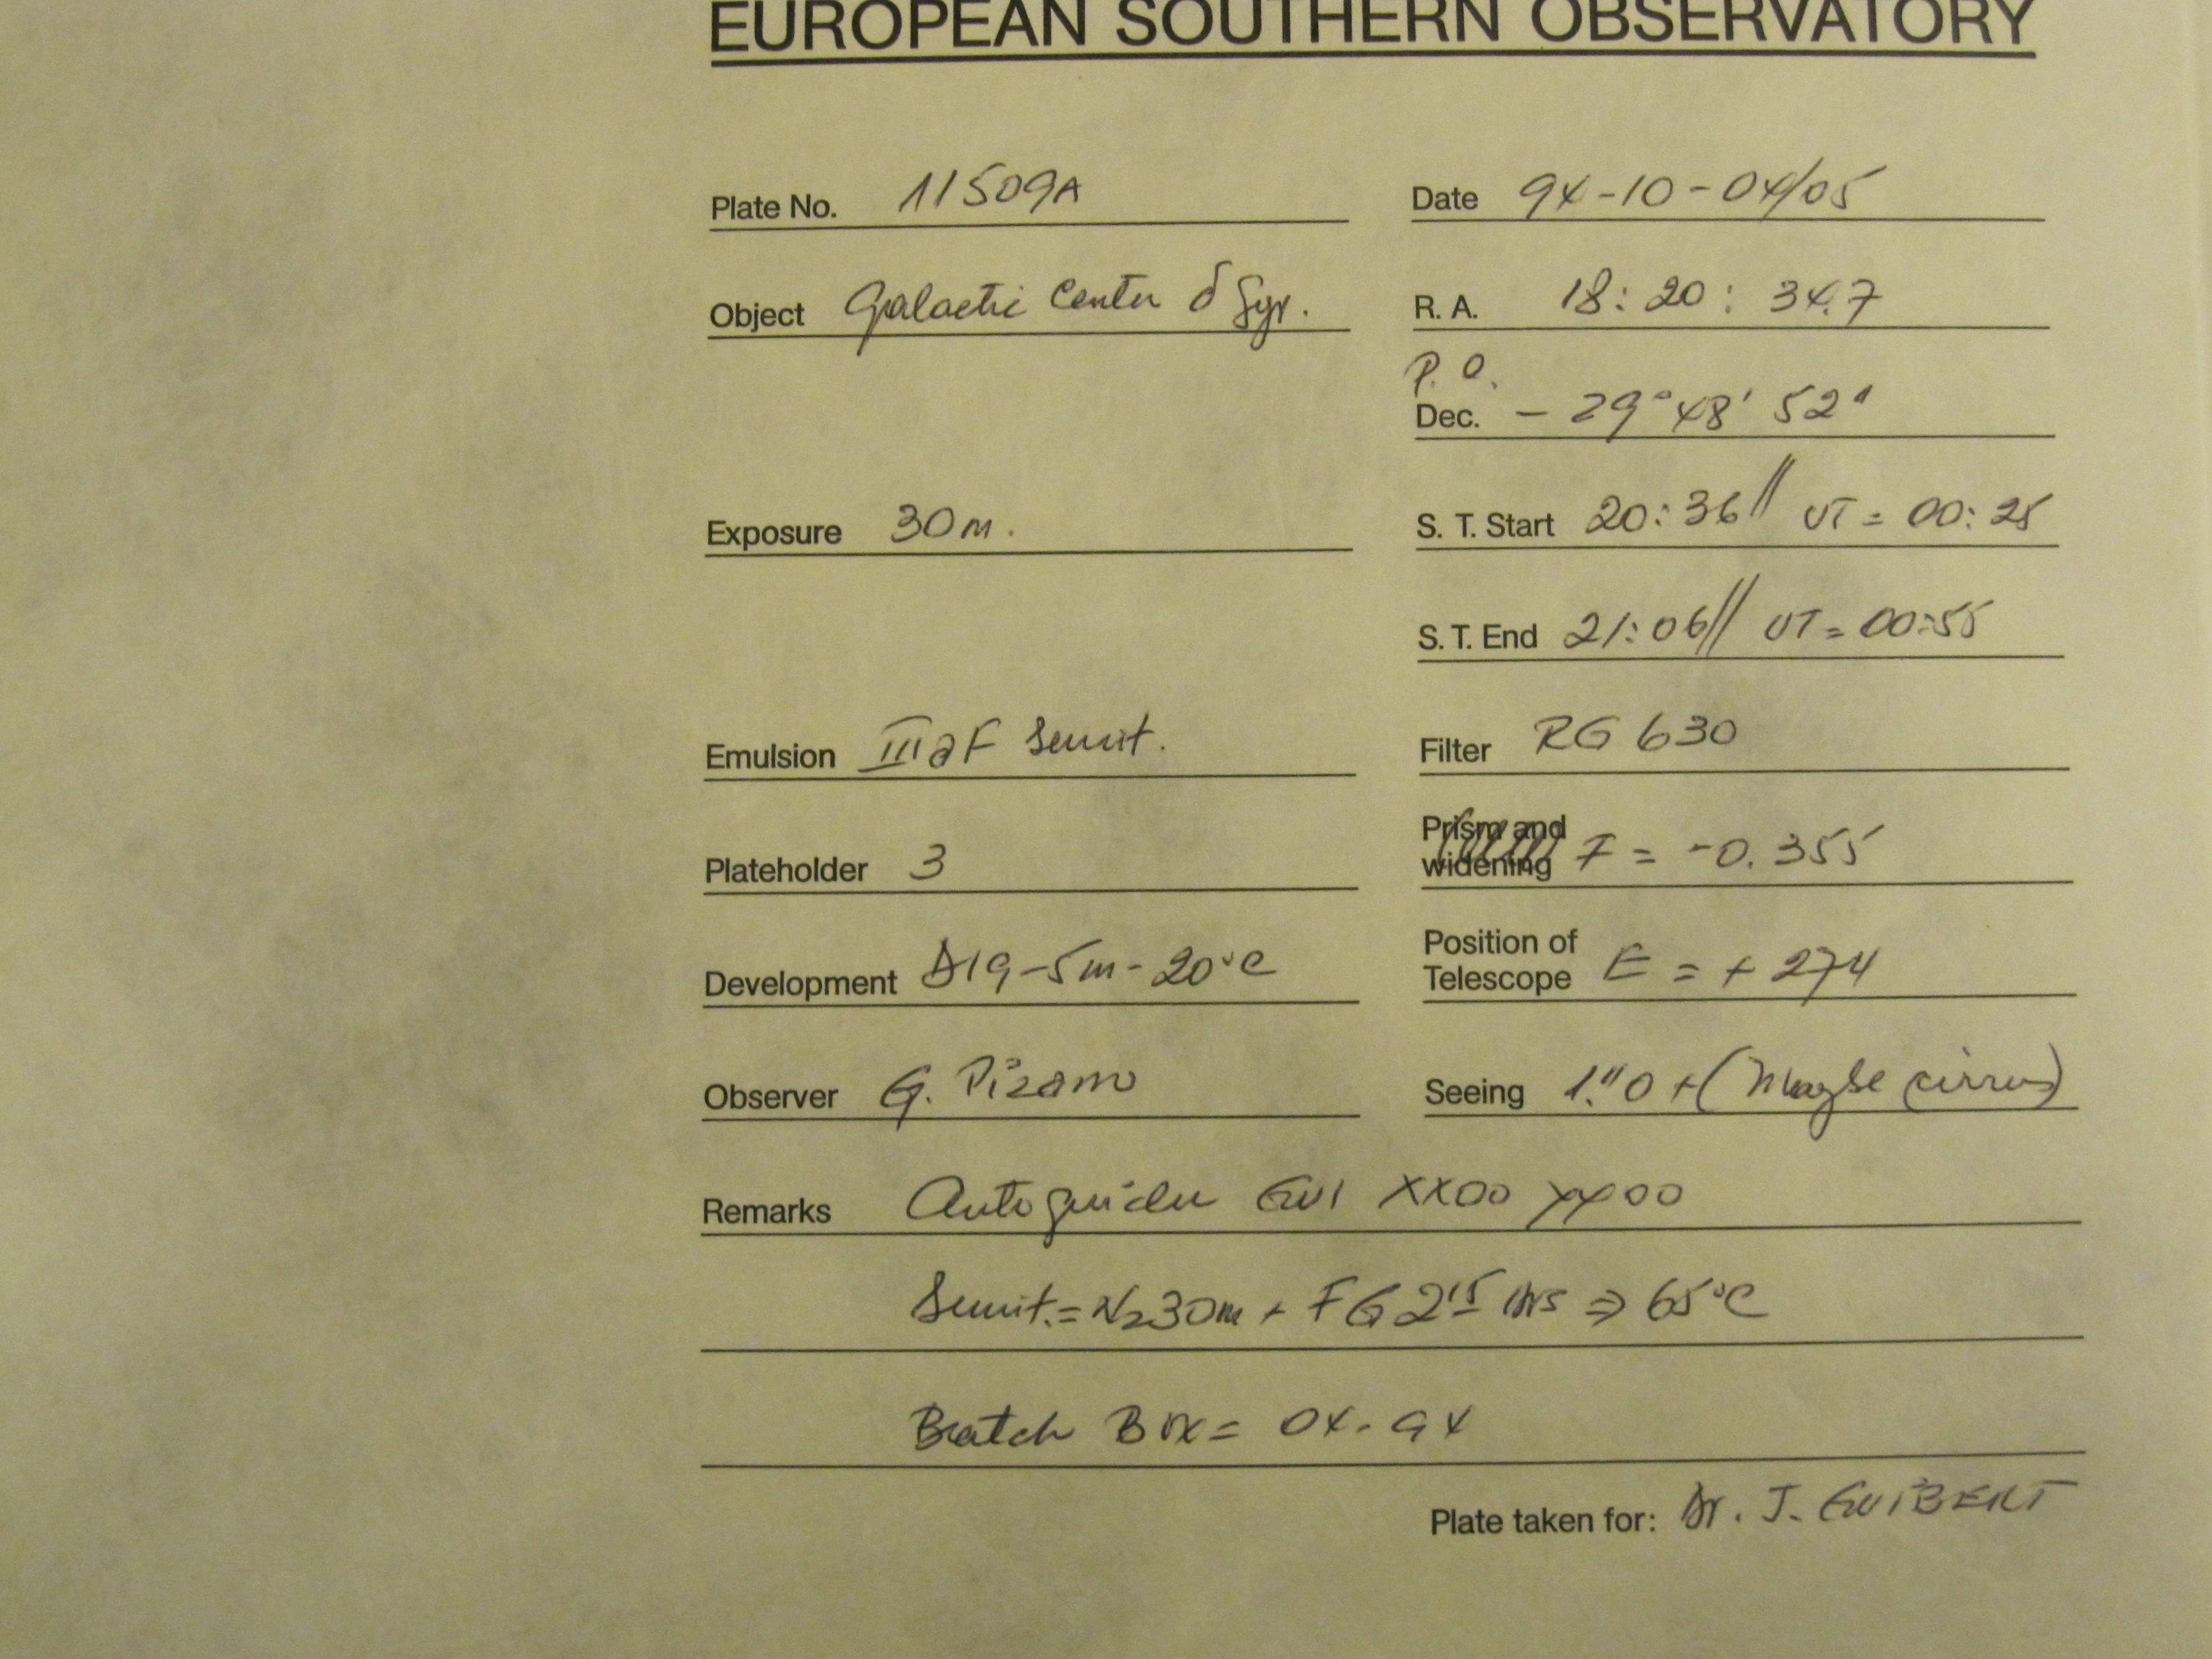 EUROPEAN SOUTHERN OBSERVATORY
Plate No. 11509A
Date 94-10-04/05
Object Galactic Center δ Sgr.
R. A. 18: 20: 34.7
P. O.
Dec. - 29° 48' 52"
Exposure 30m.
S. T. Start 20:36 // UT = 00:25
S. T. End 21:06 // UT = 00:55
Emulsion IIIaF Sensit.
Filter RG 630
Plateholder 3
Prism and
widening F = -0.355
Development D19-5m-20°C
Position of
Telescope E = + 274
Observer G. Pizarro
Seeing 1."0 + (Maybe cirrus)
Remarks Autoguider XX00 YY00
Sensit. = N2 30m + FG 2 15 hrs ⇒ 65°C
Batch Box = 04-94
Plate taken for: Dr. J. GUIBERT